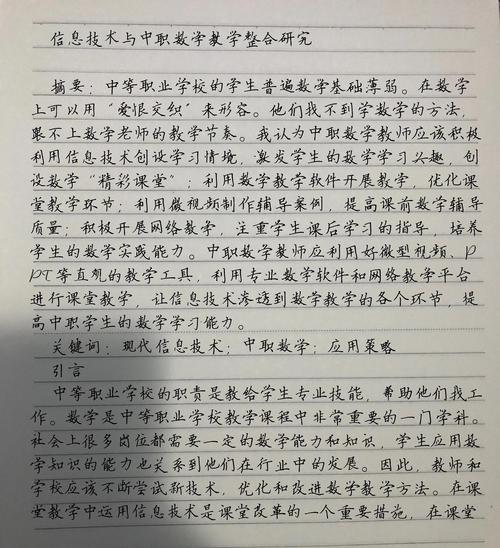 信息技术与中职数学教学整合研究
摘要：中等职业学校的学生普遍数学基础薄弱。在数学
上可以用“爱恨交织”来形容。他们找不到学数学的方法，
跟不上数学老师的教学节奏。我认为中职数学教师应该积极
利用信息技术创设学习情境，激发学生的数学学习兴趣，创
设数学“精彩课堂”；利用数学教学软件开展教学，优化课
堂教学环节；利用微视频制作辅导案例，提高课前数学辅导
质量；积极开展网络教学，注重学生课后学习的指导，培养
学生的数学实践能力。中职数学教师应利用好微型视频、P
PT等直观的教学工具，利用专业数学软件和网络教学平台
进行课堂教学，让信息技术渗透到数学教学的各个环节，提
高中职学生的数学学习能力。
关键词：现代信息技术；中职数学；应用策略
引言
中等职业学校的职责是教给学生专业技能，帮助他们找工
作。数学是中等职业学校教学课程中非常重要的一门学科。
社会上很多岗位都需要一定的数学能力和知识，学生应用数
学知识的能力也关系到他们在行业中的发展。因此，教师和
学校应该不断尝试新技术，优化和改进数学教学方法。在课
堂教学中运用信息技术是课堂改革的一个重要措施，在课堂